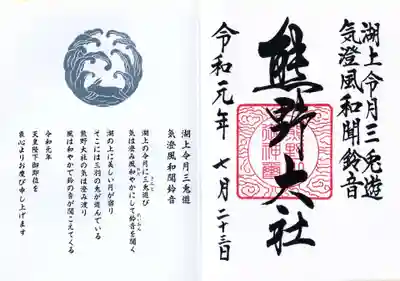 湖上令月三兎遊
気澄風和聞鈴音
熊野大社
令和元年 七月二十三日
湖上令月三兎遊
気澄風和聞鈴音
湖上の令月に三兎遊び
気は澄み風和やかにして鈴音を聞く
湖の上に美しい月が宿り
そこには三羽の兎が遊んでいる
熊野大社の気は澄み渡り
風は和やかで鈴の音が聞こえてくる
令和元年
天皇陛下御即位を
衷心よりお慶び申し上げます